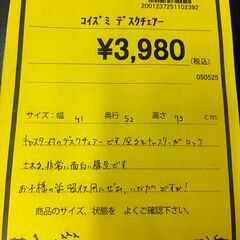 2001237251102392
コイズミ デスクチェアー
¥3,980
(税込)
050525
サイズ:幅 41 奥行 52 高さ 73 cm
キャスター付のデスクチェアーです。座るとキャスターがロック
される、非常に面白い構造です
お子様の学習机用にぜひ、いかがですか!
商品のサイズ、状態を よくご確認下さい。